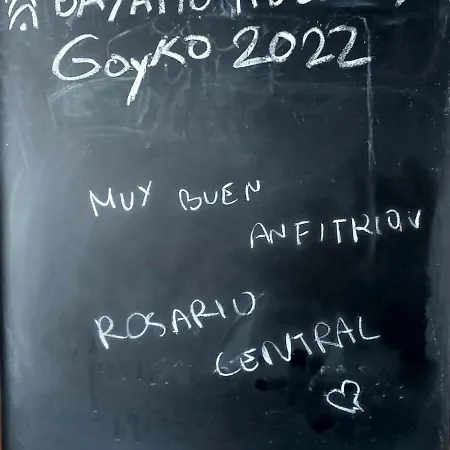 Goyko 2022
MUY BUEN
ANFITRION
ROSARIO
CENTRAL